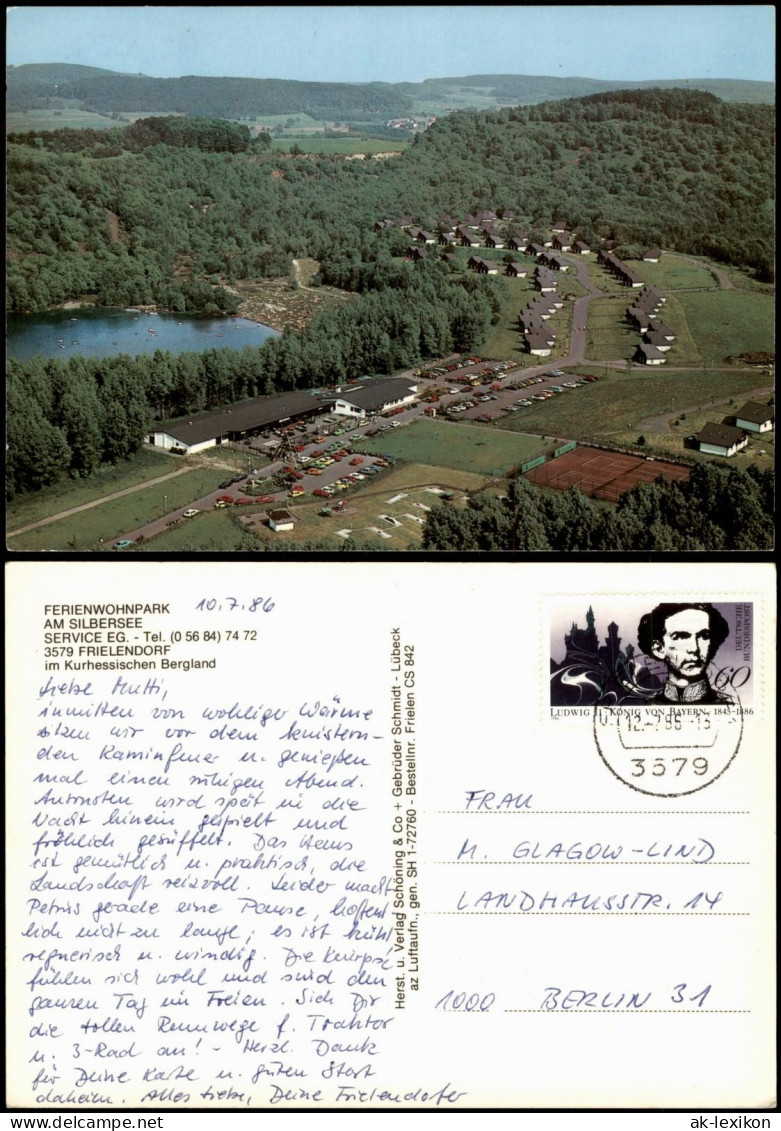 FERIENWOHNPARK
AM SILBERSEE
SERVICE EG. - Tel. (0 56 84) 74 72
3579 FRIELENDORF
im Kurhessischen Bergland
10.7.86
Liebe Mutti,
inmitten von wohliger Wärme
sitzen wir vor dem knistern-
den Kaminfeuer u. genießen
mal einen ruhigen Abend.
wird spät in die
Nacht hinein gespielt und
fröhlich gesüffelt. Das Haus
ist gemütlich u. praktisch, die
Landschaft reizvoll. Leider macht
Petrus gerade eine Pause, hoffent
lich nicht zu lange; es ist kühl
regnerisch u. windig. Die Knirpse
fühlen sich wohl und sind den
ganzen Tag im Freien. Sieh Dir
die tollen Rennwege f. Traktor
u. 3-Rad an! - Herzl. Dank
für Deine Karte u. guten Start
daheim. Alles Liebe, Deine Frielendorfer
Herst. u. Verlag Schöning & Co + Gebrüder Schmidt - Lübeck
az Luftaufn., gen. SH 1-72760 - Bestellnr. Frielen CS 842
DEUTSCHE
BUNDESPOST
60
LUDWIG II. KÖNIG VON BAYERN 1845-1886
12.-7.86-15
3579
FRAU
M. GLAGOW-LIND
LANDHAUSSTR. 14
1000 BERLIN 31
www.ansichtskarten-lexikon.de
ak-lexikon